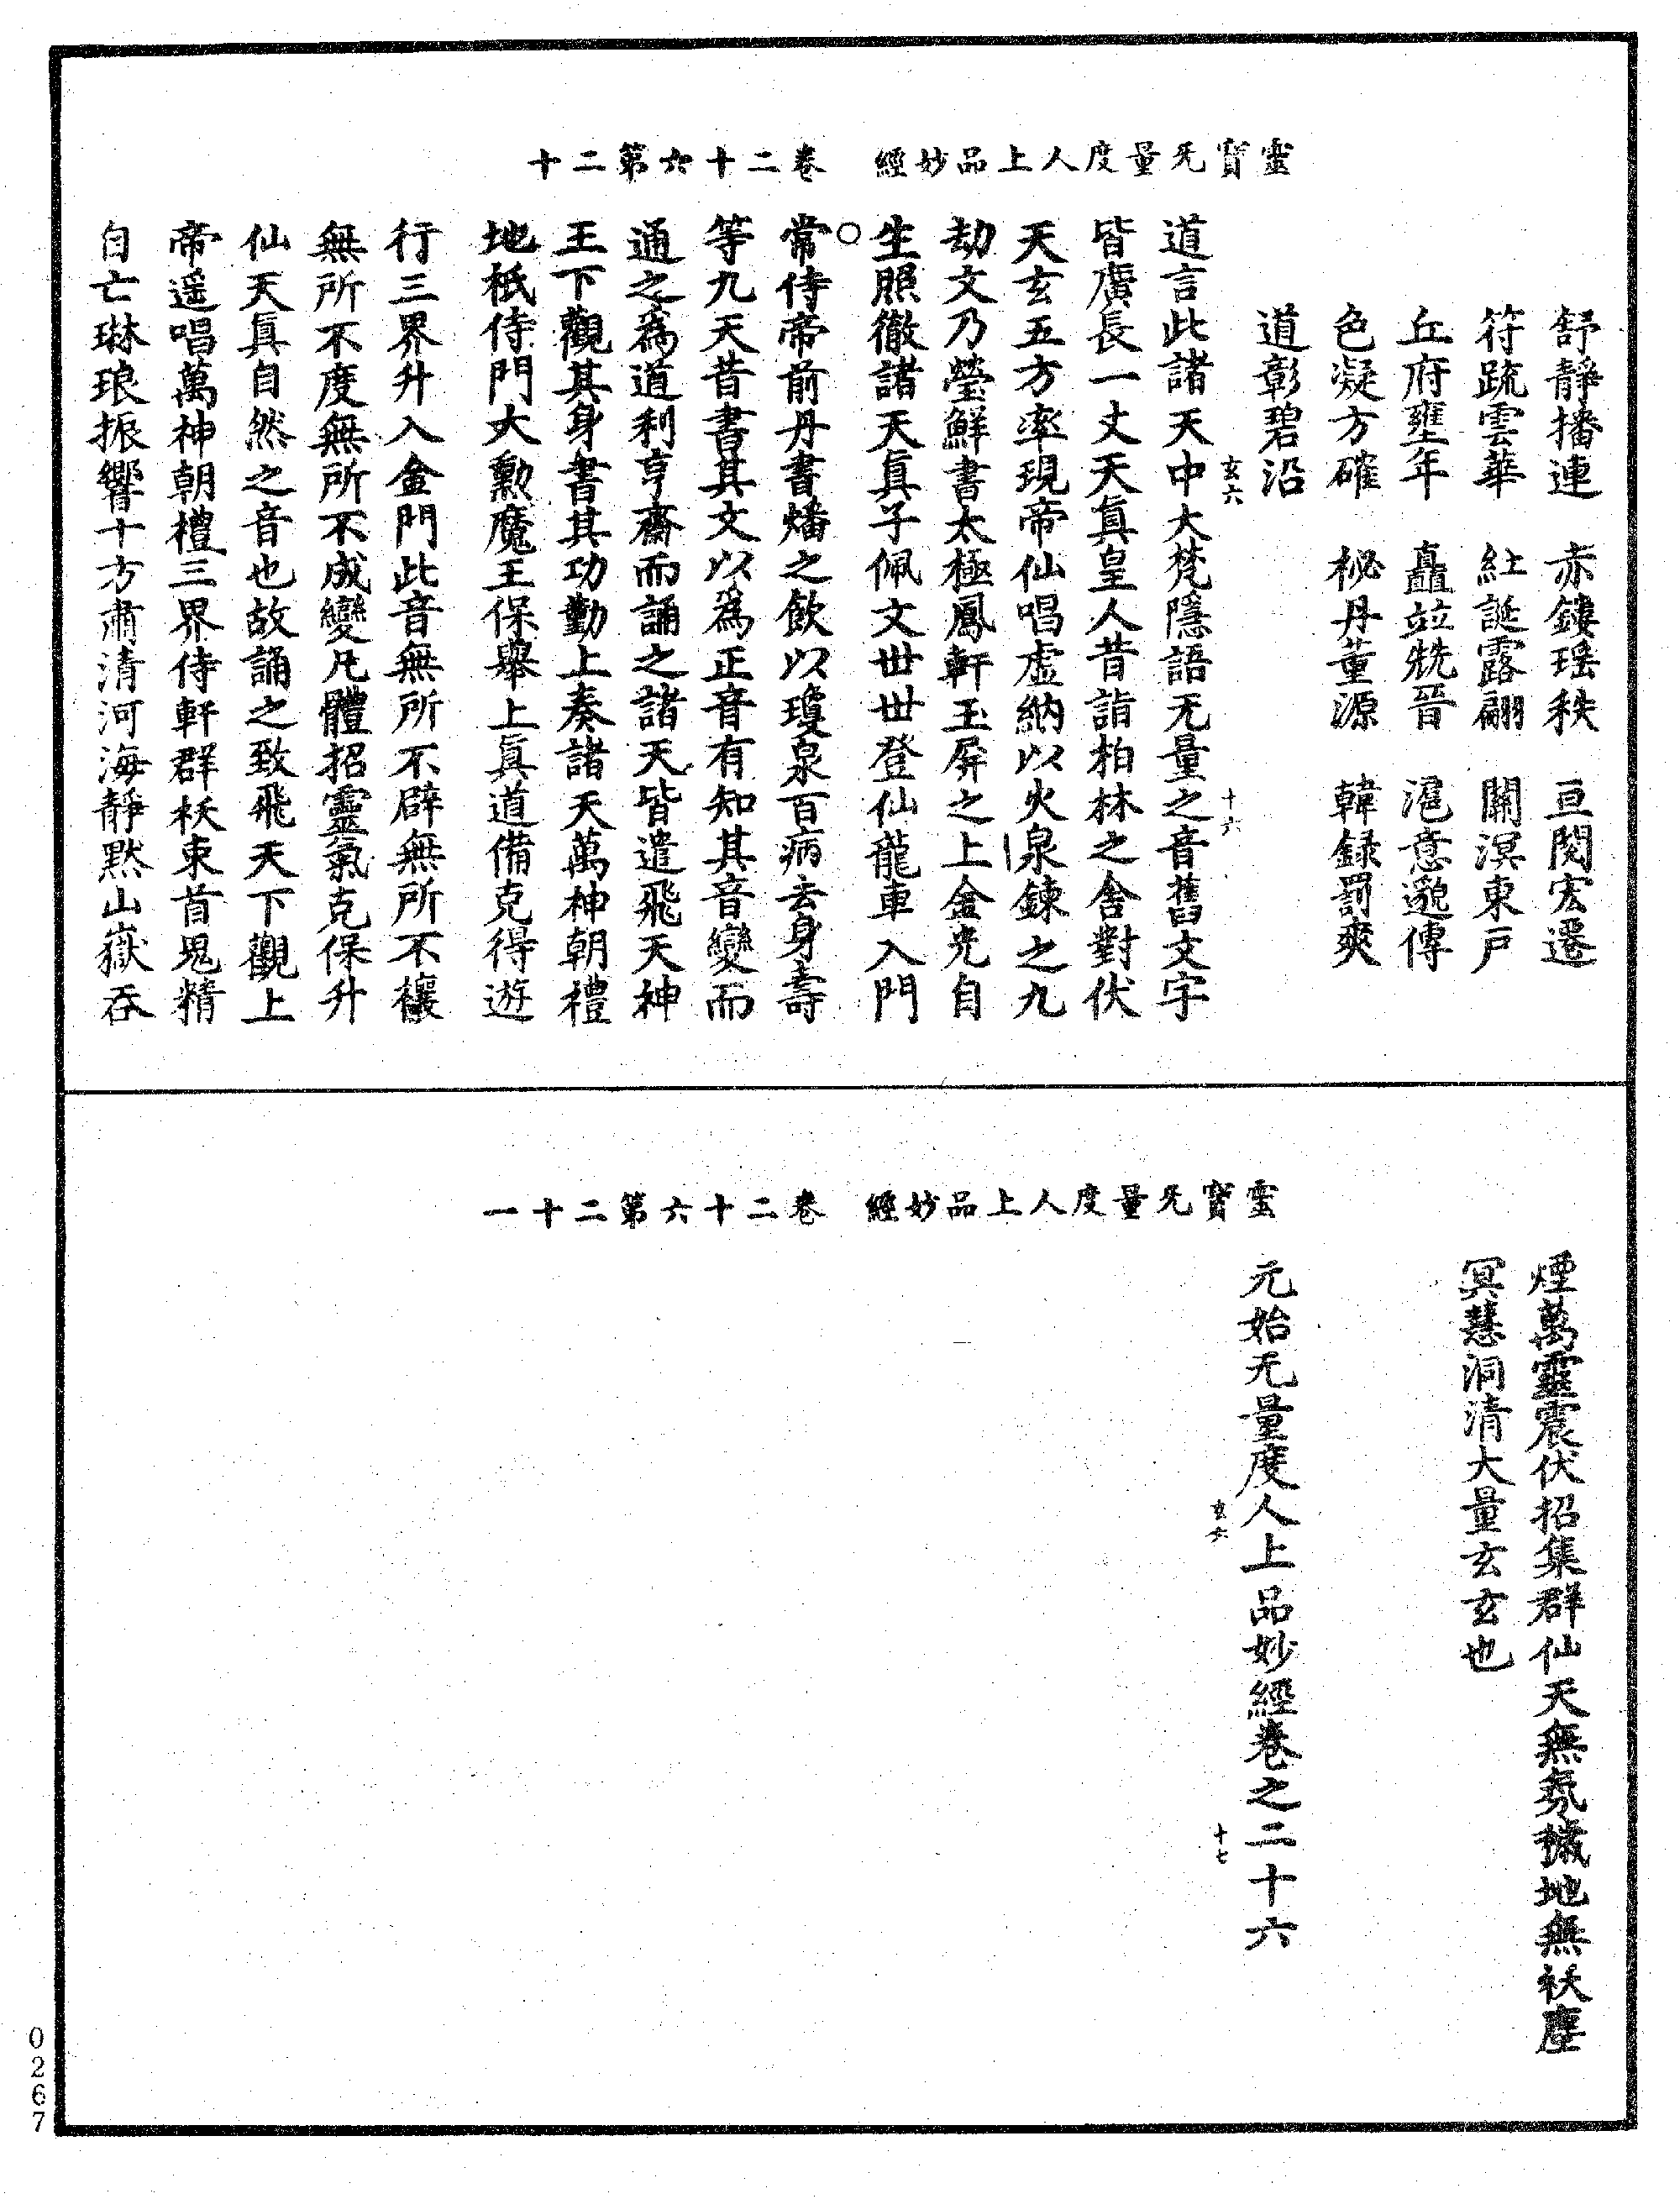 靈寶无量度人上品妙經　卷二十六第二十
舒靜播連　赤鏤瑶秩　亘閔宏遷
符䟽雲華　紅誕露翩　關溟東戸
丘府壅年　矗竝兟晉　滬意邈傳
色凝方確　柲丹董源　韓録罰爽
道彰碧沿
玄六　十六
道言此諸天中大梵隱語无量之音舊文字
皆廣長一丈天眞皇人昔詣柏林之舍對伏
天玄五方率現帝仙唱虚納以火泉鍊之九
劫文乃瑩鮮書太極鳳軒玉屏之上金光自
生照徹諸天眞子佩文世世登仙龍車入門
○
常侍帝前丹書燔之飲以瓊泉百病去身壽
等九天昔書其文以爲正音有知其音變而
通之爲道利亨齋而誦之諸天皆遣飛天神
王下觀其身書其功勤上奏諸天萬神朝禮
地祇侍門大勳魔王保舉上眞道備克得遊
行三界升入金門此音無所不辟無所不禳
無所不度無所不成變凡體招靈氣克保升
仙天眞自然之音也故誦之致飛天下觀上
帝遥唱萬神朝禮三界侍軒群袄束首鬼精
自亡琳琅振響十方肅清河海靜默山嶽吞
靈寶无量度人上品妙經　卷二十六第二十一
煙萬靈震伏招集群仙天無氛穢地無袄塵
冥慧洞清大量玄玄也
元始无量度人上品妙經卷之二十六
玄六　十七
0267